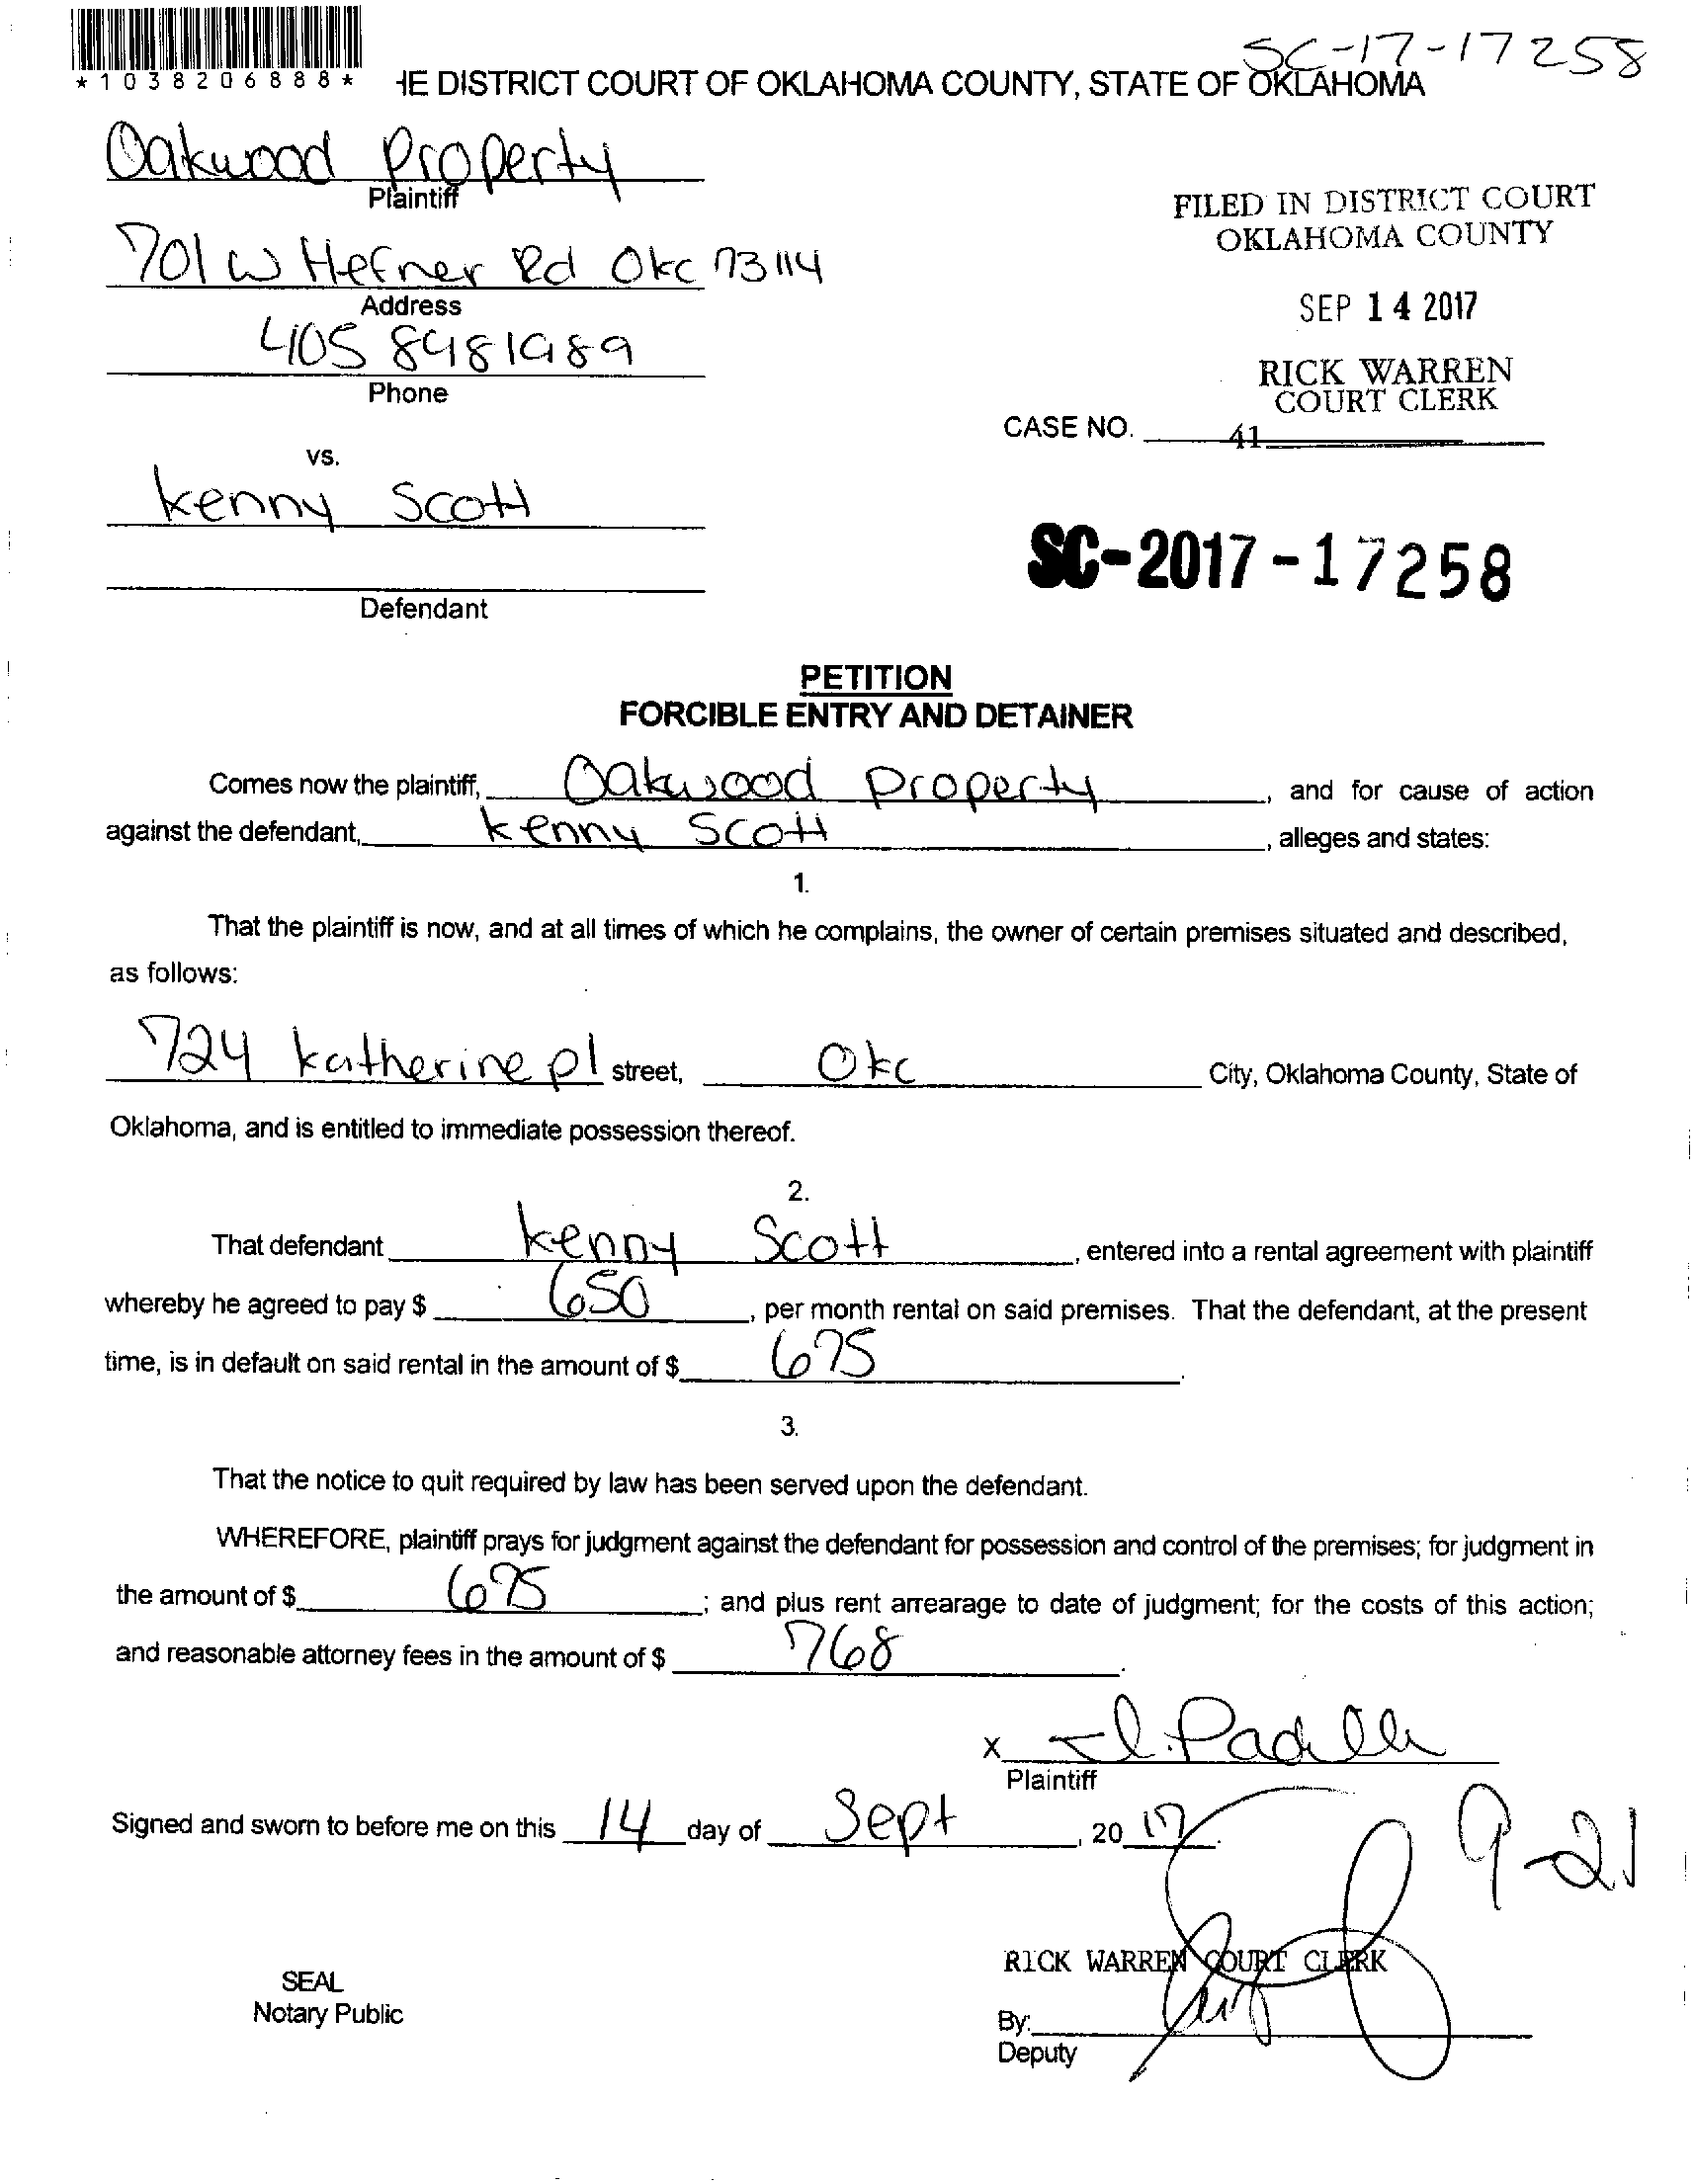 SC-17-17258
*1038206888*
HE DISTRICT COURT OF OKLAHOMA COUNTY, STATE OF OKLAHOMA
Oakwood Property
Plaintiff
701 W Hefner Rd Okc 73114
Address
405 8481989
Phone
vs.
Kenny Scott
Defendant
FILED IN DISTRICT COURT
OKLAHOMA COUNTY
SEP 14 2017
RICK WARREN
COURT CLERK
CASE NO. 41
SC-2017-17258
PETITION
FORCIBLE ENTRY AND DETAINER
Comes now the plaintiff, Oakwood Property, and for cause of action
against the defendant, Kenny Scott, alleges and states:
1.
That the plaintiff is now, and at all times of which he complains, the owner of certain premises situated and described,
as follows:
724 Katherine pl street, Okc City, Oklahoma County, State of
Oklahoma, and is entitled to immediate possession thereof.
2.
That defendant Kenny Scott, entered into a rental agreement with plaintiff
whereby he agreed to pay $ 650, per month rental on said premises. That the defendant, at the present
time, is in default on said rental in the amount of $ 675.
3.
That the notice to quit required by law has been served upon the defendant.
WHEREFORE, plaintiff prays for judgment against the defendant for possession and control of the premises; for judgment in
the amount of $ 675; and plus rent arrearage to date of judgment; for the costs of this action;
and reasonable attorney fees in the amount of $ 768.
x Padilla
Plaintiff
Signed and sworn to before me on this 14 day of Sept, 20 17.
9-21
RICK WARREN COURT CLERK
SEAL
Notary Public
By:
Deputy